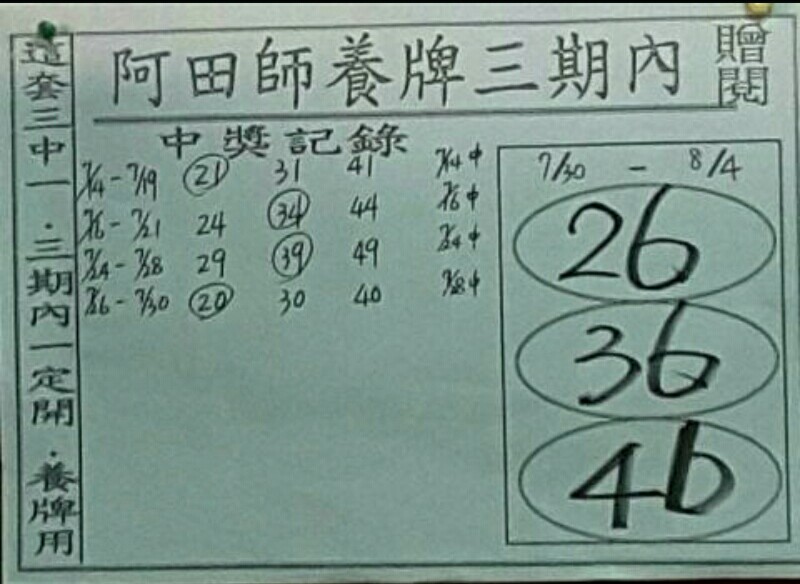 阿田師養牌三期內
贈閱
這套三中一．三期內一定開．養牌用
中獎記錄
7/14-7/19 21 31 41 7/14中
7/16-7/21 24 34 44 7/16中
7/24-7/28 29 39 49 7/24中
7/26-7/30 20 30 40 7/28中
7/30 - 8/4
26
36
46